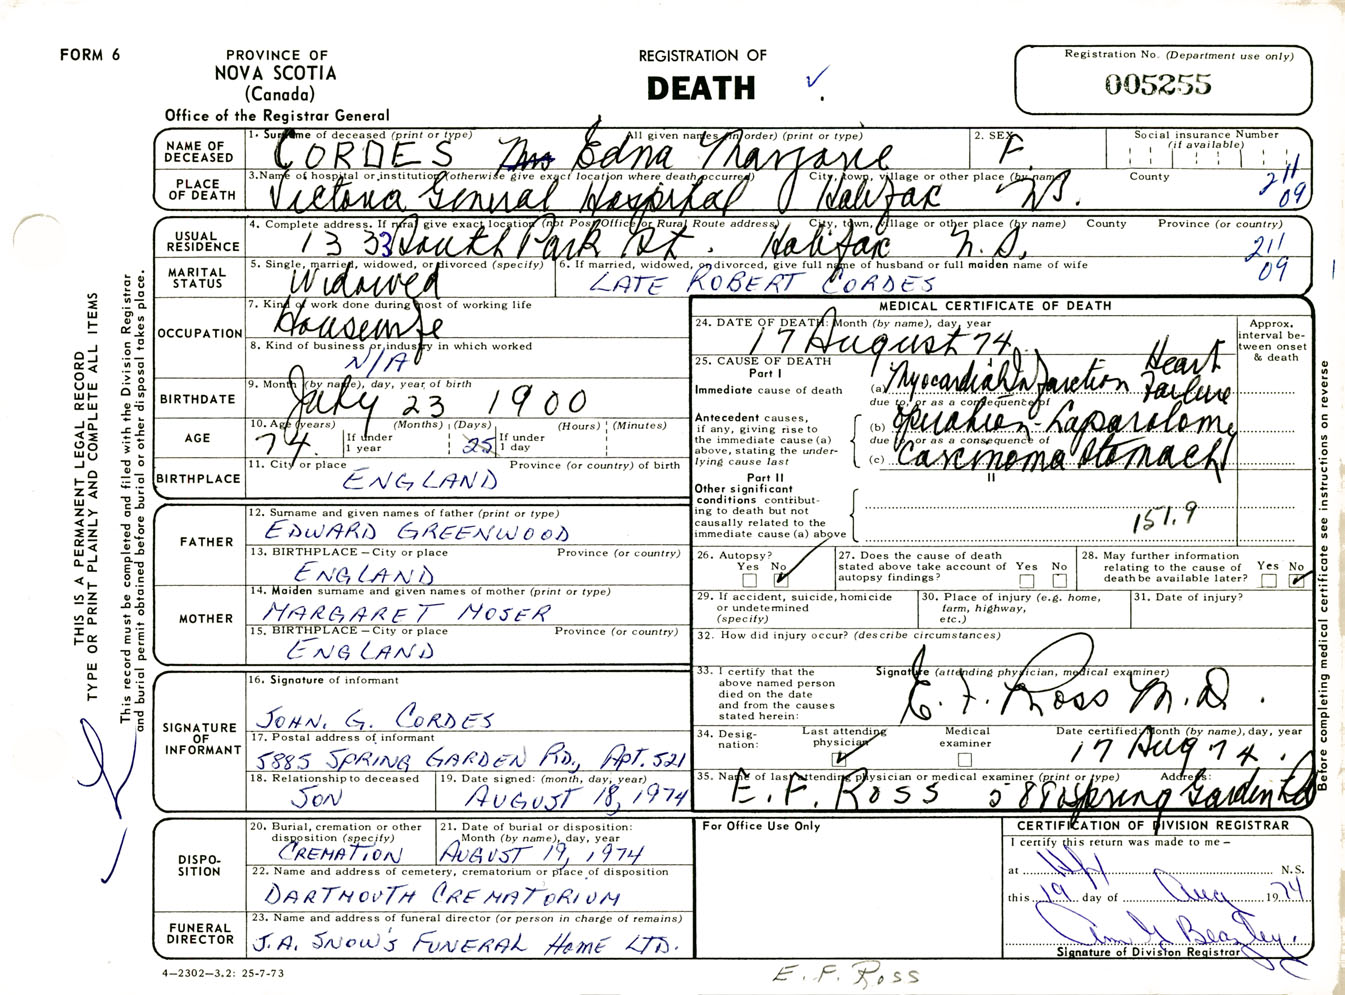 FORM 6
PROVINCE OF
NOVA SCOTIA
(Canada)
Office of the Registrar General
REGISTRATION OF
DEATH
Registration No. (Department use only)
005255
NAME OF DECEASED
1. Surname of deceased (print or type) All given names (in order) (print or type)
CORDES Mrs Edna Marjorie
2. SEX
F.
Social insurance Number
(if available)
PLACE OF DEATH
3.Name of hospital or institution (otherwise give exact location where death occurred) City, town, village or other place (by name) County
Victoria General Hospital Halifax NS.
211
09
USUAL RESIDENCE
4. Complete address. If rural give exact location (not Post Office or Rural Route address) City, town, village or other place (by name) County Province (or country)
1333 South Park St. Halifax N.S.
211
09
MARITAL STATUS
5. Single, married, widowed, or divorced (specify)
Widowed
6. If married, widowed, or divorced, give full name of husband or full maiden name of wife
LATE ROBERT CORDES
OCCUPATION
7. Kind of work done during most of working life
Housewife
8. Kind of business or industry in which worked
N/A
BIRTHDATE
9. Month (by name), day, year of birth
July 23 1900
AGE
10. Age (years) (Months) (Days) (Hours) (Minutes)
74. If under 1 year 25 If under 1 day
BIRTHPLACE
11. City or place Province (or country) of birth
ENGLAND
FATHER
12. Surname and given names of father (print or type)
EDWARD GREENWOOD
13. BIRTHPLACE – City or place Province (or country)
ENGLAND
MOTHER
14. Maiden surname and given names of mother (print or type)
MARGARET MOSER
15. BIRTHPLACE – City or place Province (or country)
ENGLAND
SIGNATURE OF INFORMANT
16. Signature of informant
JOHN. G. CORDES
17. Postal address of informant
5885 SPRING GARDEN RD., APT. 521
18. Relationship to deceased
SON
19. Date signed: (month, day, year)
AUGUST 18, 1974
DISPO-
SITION
20. Burial, cremation or other
disposition (specify)
CREMATION
21. Date of burial or disposition:
Month (by name), day, year
AUGUST 19, 1974
22. Name and address of cemetery, crematorium or place of disposition
DARTMOUTH CREMATORIUM
FUNERAL DIRECTOR
23. Name and address of funeral director (or person in charge of remains)
J.A. SNOW'S FUNERAL HOME LTD.
4–2302–3.2: 25-7-73
MEDICAL CERTIFICATE OF DEATH
24. DATE OF DEATH: Month (by name), day, year
17 August 74.
Approx.
interval be-
tween onset
& death
25. CAUSE OF DEATH
Part I
Immediate cause of death
(a) Myocardial Infarction Heart Failure
due to, or as a consequence of
Antecedent causes,
if any, giving rise to
the immediate cause (a)
above, stating the under-
lying cause last
(b) Operation - Laparotomy
due to, or as a consequence of
(c) Carcinoma Stomach
Part II
II
Other significant
conditions contribut-
ing to death but not
causally related to the
immediate cause (a) above
151.9
26. Autopsy?
Yes No
27. Does the cause of death
stated above take account of
autopsy findings?
Yes No
28. May further information
relating to the cause of
death be available later?
Yes No
29. If accident, suicide, homicide
or undetemined
(specify)
30. Place of injury (e.g. home,
farm, highway,
etc.)
31. Date of injury?
32. How did injury occur? (describe circumstances)
33. I certify that the
above named person
died on the date
and from the causes
stated herein:
Signature (attending physician, medical examiner)
E. F. Ross M.D.
34. Desig-
nation:
Last attending
physician
Medical
examiner
Date certified: Month (by name), day, year
17 Aug 74.
35. Name of last attending physician or medical examiner (print or type) Address:
E. F. Ross Spring Garden Rd
For Office Use Only
CERTIFICATION OF DIVISION REGISTRAR
I certify this return was made to me –
at Hfx N.S.
this 19 day of Aug 1974
Signature of Division Registrar
E. F. Ross
THIS IS A PERMANENT LEGAL RECORD
TYPE OR PRINT PLAINLY AND COMPLETE ALL ITEMS
This record must be completed and filed with the Division Registrar
and burial permit obtained before burial or other disposal takes place.
Before completing medical certificate see instructions on reverse